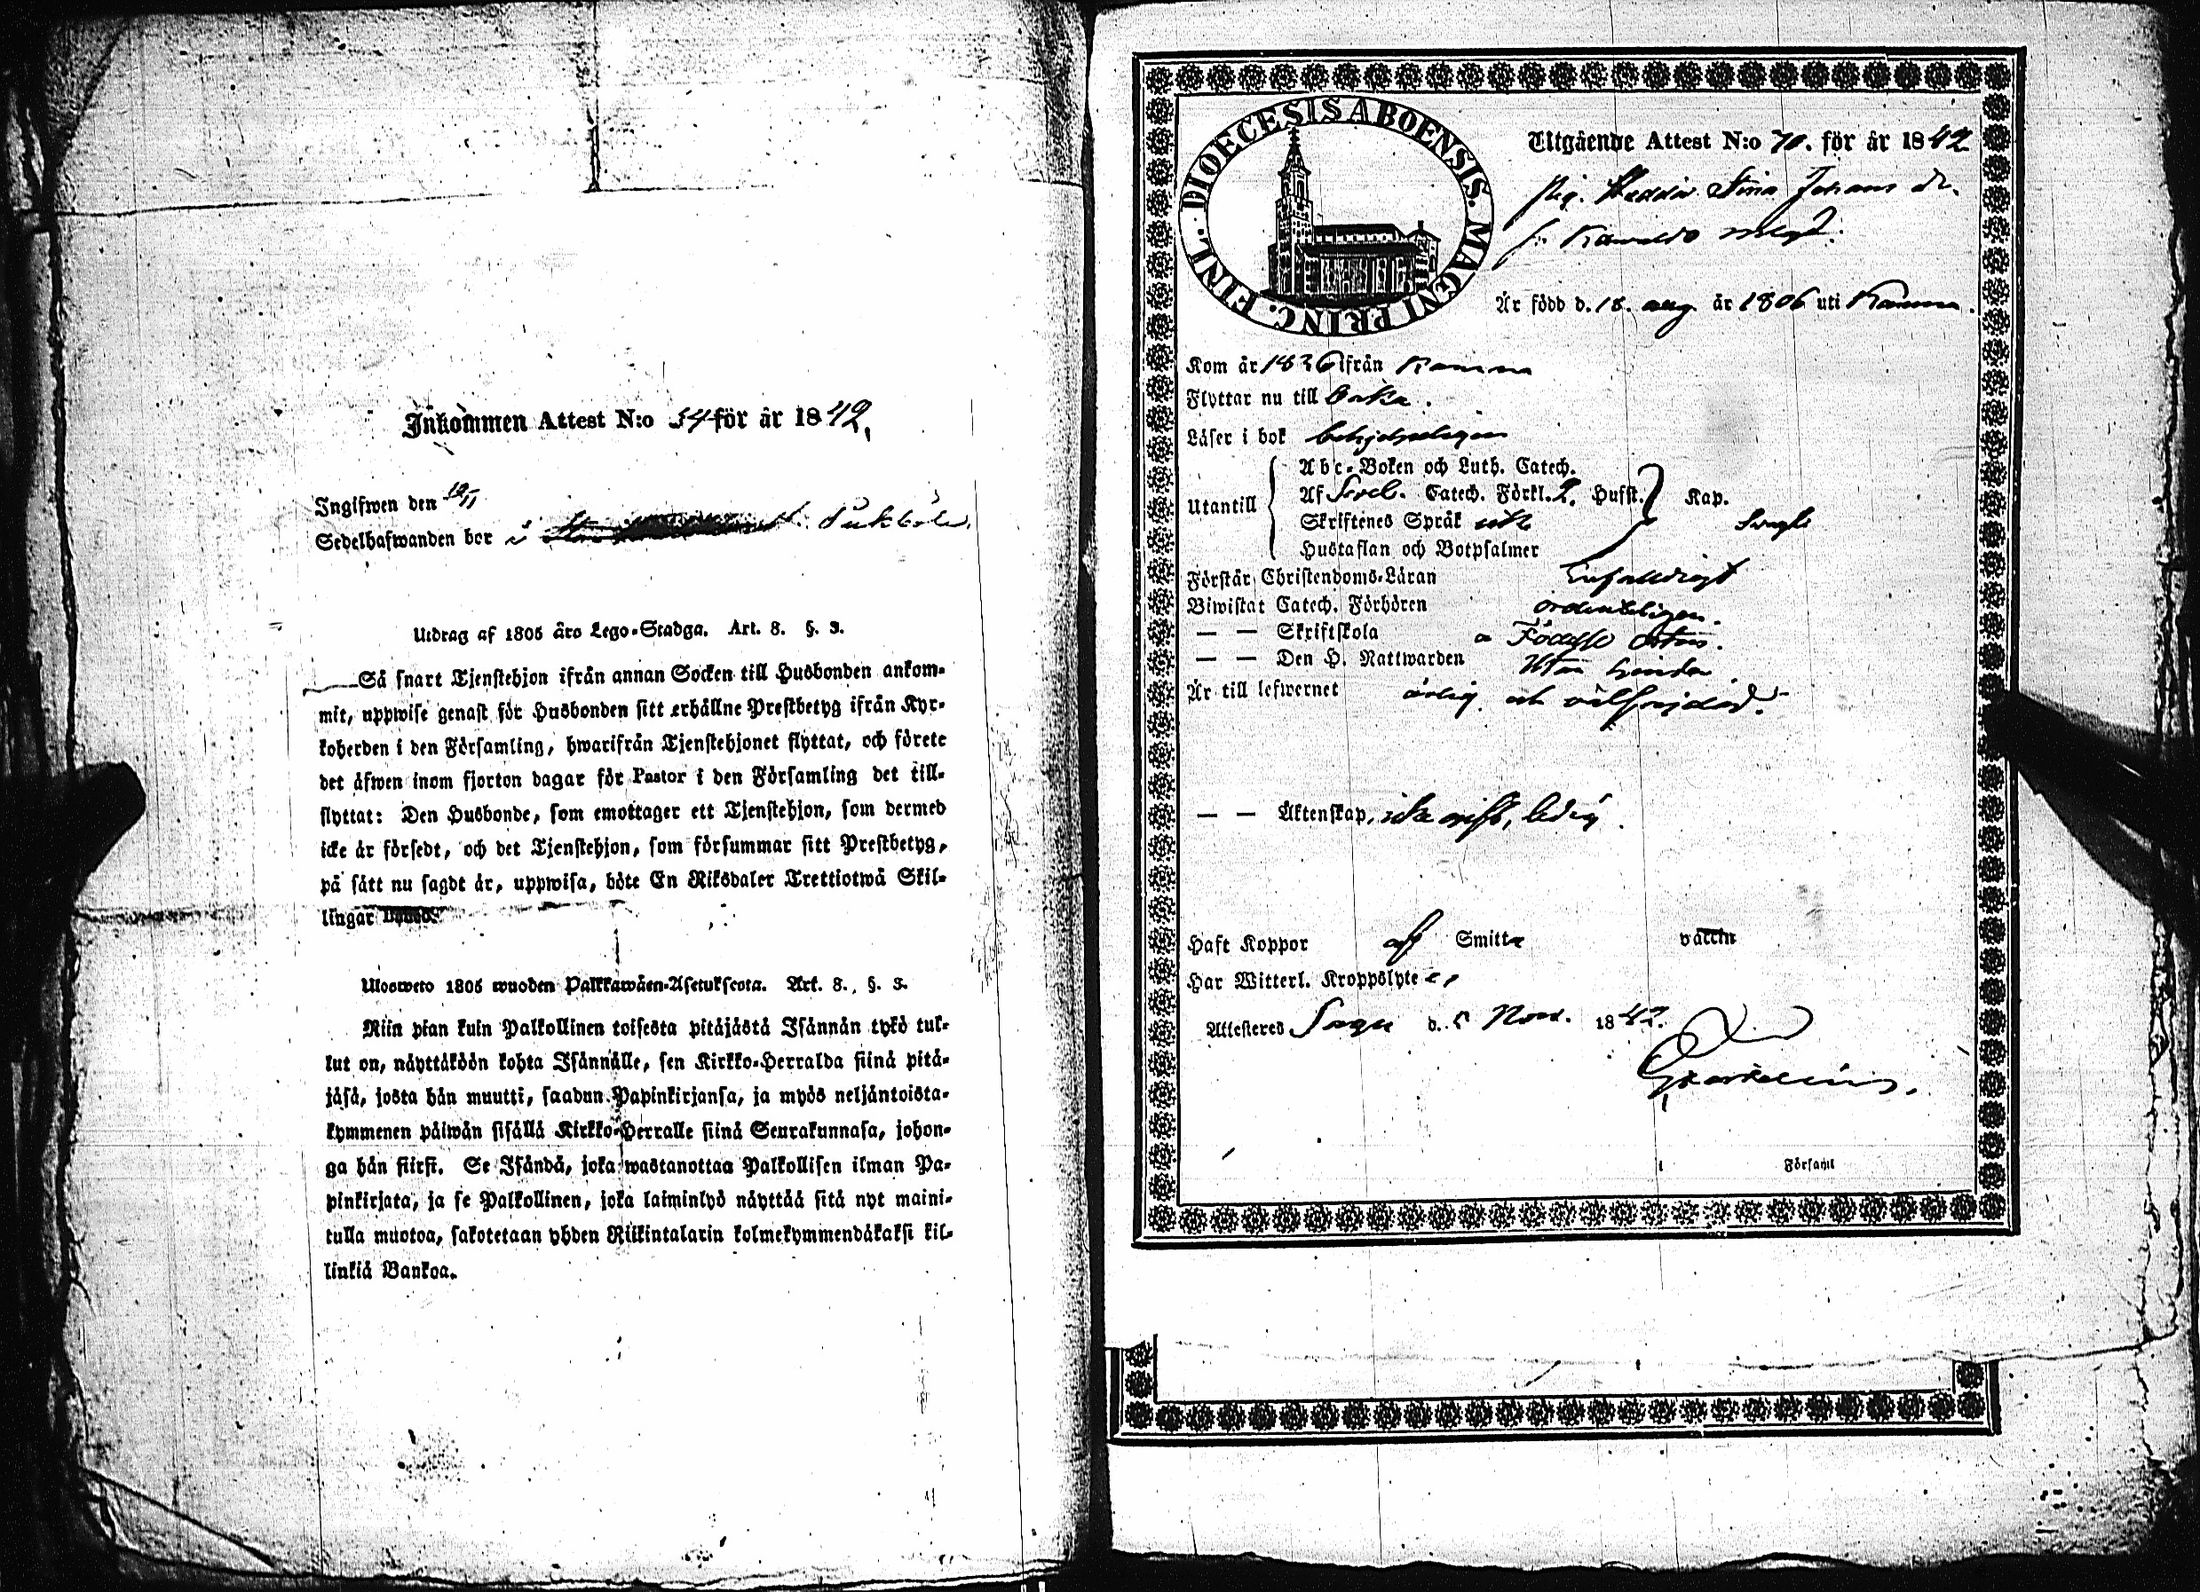 Inkommen Attest N:o 34 för år 1842.
Ingifwen den 19/11
Sedelhafwanden bor i
Utdrag af 1805 års Lego-Stadga. Art. 8. §. 3.
Så snart Tjenstehjon ifrån annan Socken till Husbonden ankom-
mit, uppwise genast för Husbonden sitt erhållne Prestbetyg ifrån Kyr-
koherden i den Församling, hwarifrån Tjenstehjonet flyttat, och förete
det äfwen inom fjorton dagar för Pastor i den Församling det till-
flyttat: Den Husbonde, som emottager ett Tjenstehjon, som dermed
icke är försedt, och det Tjenstehjon, som försummar sitt Prestbetyg,
på sätt nu sagdt är, uppwisa, böte En Riksdaler Trettiotwå Skil-
lingar Banco.
Ulosweto 1805 wuoden Palkkawäen-Asetuksesta. Art. 8., §. 3.
Niin pian kuin Palkollinen toisesta pitäjästä Isännän tykö tul-
lut on, näyttäköön kohta Isännälle, sen Kirkko-Herralda siinä pitä-
jäsä, josta hän muutti, saadun Papinkirjansa, ja myös neljäntoista-
kymmenen päiwän sisällä Kirkko-Herralle siinä Seurakunnasa, johon-
ga hän siirsi. Se Isändä, joka wastanottaa Palkollisen ilman Pa-
pinkirjata, ja se Palkollinen, joka laiminlyö näyttää sitä nyt maini-
tulla muotoa, sakotetaan yhden Riikintalarin kolmekymmendäkaksi kil-
linkiä Bankoa.
DIOECESIS ABOENSIS. MAGNI PRINC. FINL.
Utgående Attest N:o 70. för år 1842
Pig. Hedda Stina Johans dr.
Är född d. 18. aug år 1806 uti
Kom år 1836 ifrån
Flyttar nu till
Läser i bok behjelpeligen
Utantill
Abc-Boken och Luth. Catech.
Af Sveb. Catech. Förkl. 2. Husst. Kap.
Skriftenes Språk
Hustaflan och Botpsalmer
Förstår Christendoms-Läran Enfalldigt
Biwistat Catech. Förhören ordenteligen.
— — Skriftskola Födelse orten.
— — Den H. Nattwarden Utan hinder
Är till lefwernet ärlig och välfrejdad.
— — Äktenskap, icke gift, ledig.
Haft Koppor af Smitta vaccin
Har Witterl. Kroppslyte
Attesteres Sagu d. 5 Nov. 1842.
Församl